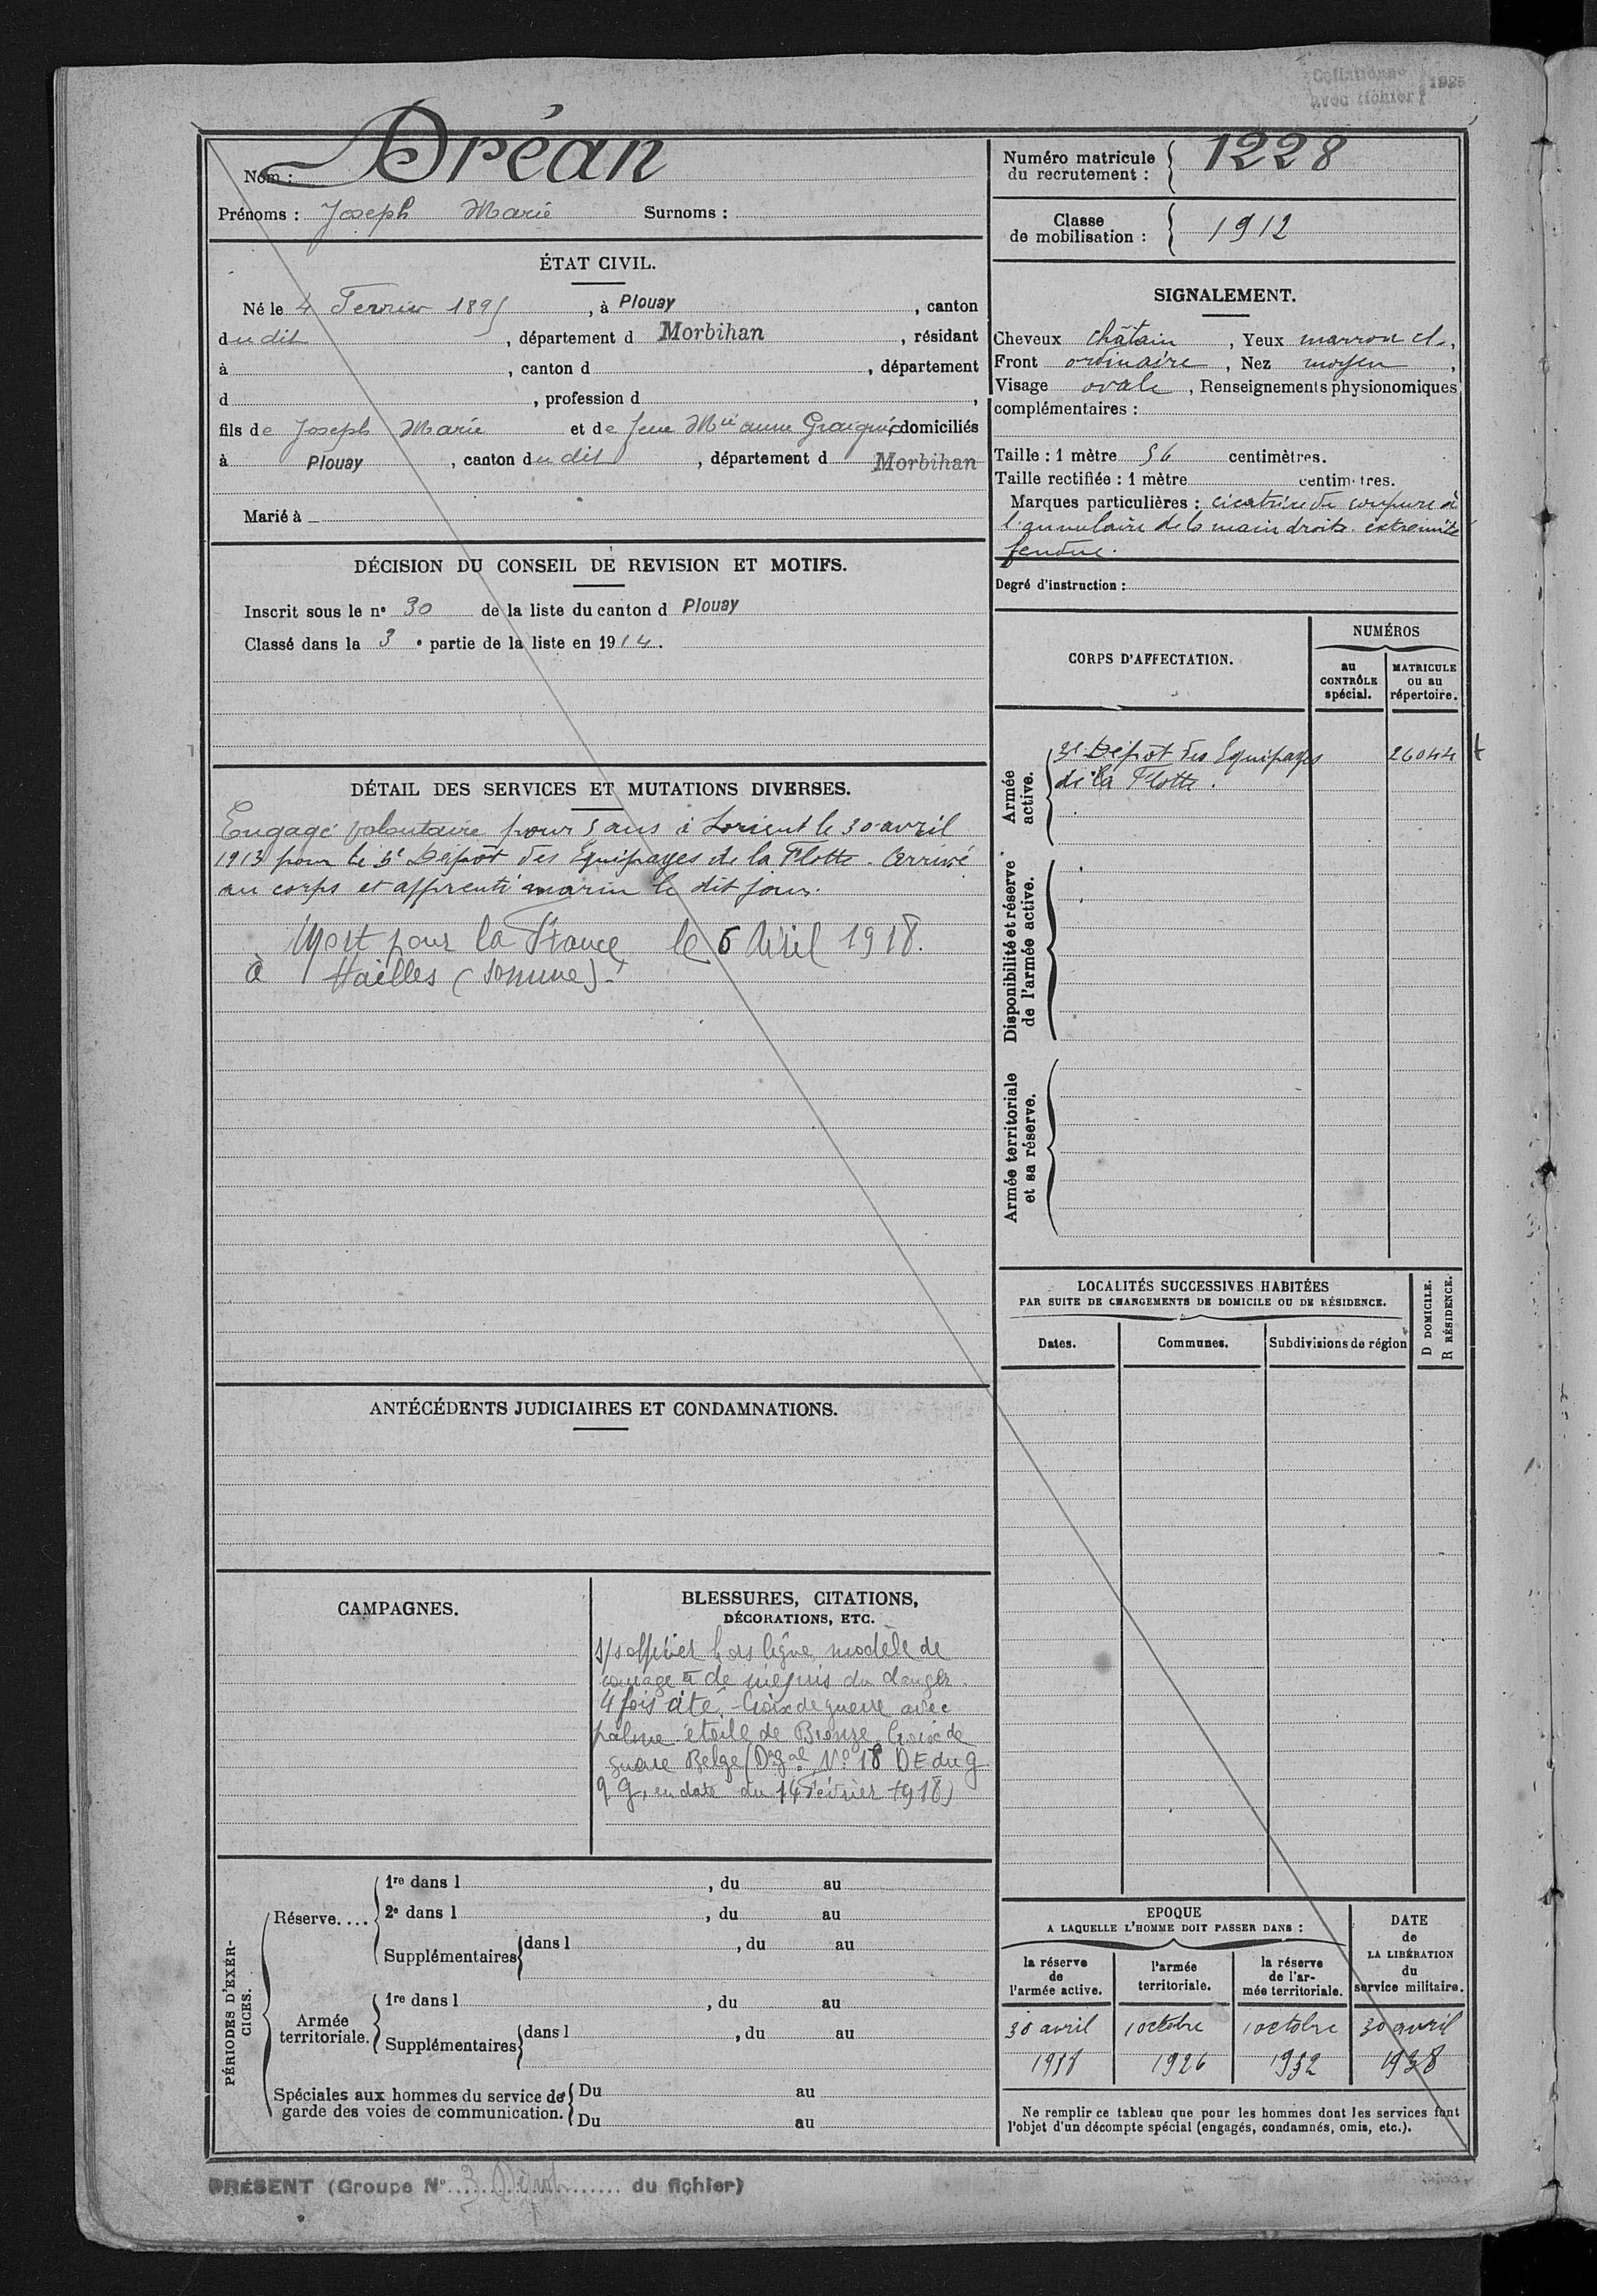 Collationné
avec fichier 1925
Nom : Dréan
Prénoms : Joseph Marie Surnoms :
ÉTAT CIVIL.
Né le 4 Fevrier 1895, à Plouay, canton
du dit, département d Morbihan, résidant
à , canton d , département
d , profession d ,
fils de Joseph Marie et de feue Mie anne , domiciliés
à Plouay, canton du dit, département d Morbihan
Marié à
DÉCISION DU CONSEIL DE REVISION ET MOTIFS.
Inscrit sous le n° 30 de la liste du canton d Plouay
Classé dans la 3e partie de la liste en 1914.
DÉTAIL DES SERVICES ET MUTATIONS DIVERSES.
Engagé volontaire pour 5 ans à Lorient le 30 avril
1913 pour le 3e Dépôt des Equipages de la Flotte. Arrivé
au corps et apprenti marin le dit jour.
Mort pour la France le 6 Avril 1918.
à Hailles (Somme).
ANTÉCÉDENTS JUDICIAIRES ET CONDAMNATIONS.
CAMPAGNES.
BLESSURES, CITATIONS,
DÉCORATIONS, ETC.
s/s officier hors ligne, modèle de
courage et de mépris du danger.
4 fois cité. Croix de guerre avec
palme étoile de Bronze, Croix de
guerre Belge (O. Gal N° 18 DE du G
Q G, en date du 14 Février 1918)
PÉRIODES D'EXER-
CICES.
Réserve....
1re dans l , du au
2e dans l , du au
Supplémentaires dans l , du au
Armée
territoriale.
1re dans l , du au
Supplémentaires dans l , du au
Spéciales aux hommes du service de
garde des voies de communication.
Du au
Du au
PRÉSENT (Groupe N° 3 Dépôt du fichier)
Numéro matricule
du recrutement : 1228
Classe
de mobilisation : 1912
SIGNALEMENT.
Cheveux châtain, Yeux marron cl.,
Front ordinaire, Nez moyen,
Visage ovale, Renseignements physionomiques
complémentaires :
Taille : 1 mètre 56 centimètres.
Taille rectifiée : 1 mètre centimètres.
Marques particulières : cicatrice de coupure à
l'annulaire de la main droite. extremité
fendue.
Degré d'instruction :
CORPS D'AFFECTATION.
NUMÉROS
au
CONTRÔLE
spécial.
MATRICULE
ou au
répertoire.
Armée
active.
3e Dépôt des Equipages 26044
de la Flotte.
Disponibilité et réserve
de l'armée active.
Armée territoriale
et sa réserve.
LOCALITÉS SUCCESSIVES HABITÉES
PAR SUITE DE CHANGEMENTS DE DOMICILE OU DE RÉSIDENCE.
Dates.
Communes.
Subdivisions de région
D DOMICILE.
R RÉSIDENCE.
EPOQUE
A LAQUELLE L'HOMME DOIT PASSER DANS :
la réserve
de
l'armée active.
l'armée
territoriale.
la réserve
de l'ar-
mée territoriale.
DATE
de
LA LIBÉRATION
du
service militaire.
30 avril 1 octobre 1 octobre 30 avril
1918 1926 1932 1938
Ne remplir ce tableau que pour les hommes dont les services font
l'objet d'un décompte spécial (engagés, condamnés, omis, etc.).